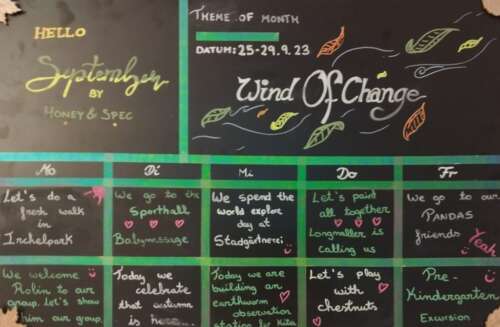 HELLO
September
BY
HONEY & SPEC
THEME OF MONTH
DATUM: 25-29.9.23
WIND OF CHANGE
Mo
Di
Mi
Do
Fr
Let's do a
fresh walk
in
Irchelpark
We go to the
Sporthall
Babymassage
We spend the
world explore
day at
Stadgärtnerei
Let's paint
all together
Longmaller is
calling us
We go to our
PANDAS
friends
Yeah
We welcome
Robin to our
group. Let's show
him our group
Today we
celebrate
that autumn
is here...
Today we are
building an
earthworm
observation
station by Kita
Let's play
with
chestnuts
Pre-
Kindergarten
Excursion